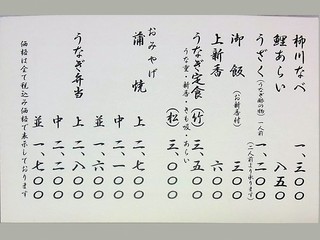 柳川なべ 一、三〇〇
鯉あらい 八五〇
うざく(うなぎ酢の物)一人前 一、二〇〇
(二人前より承ります)
御飯(お新香付) 三〇〇
上新香 六〇〇
うなぎ定食(竹) 三、五〇〇
うな重・新香・きも吸・あらい
(松) 三、〇〇〇
おみやげ
蒲焼 上 二、七〇〇
中 二、一〇〇
並 一、六〇〇
うなぎ弁当 上 二、八〇〇
中 二、二〇〇
並 一、七〇〇
価格は全て税込み価格で表示しております